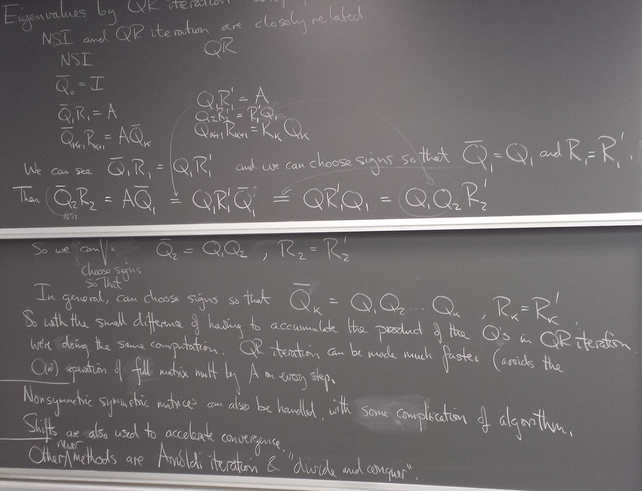 Eigenvalues by QR iteration
NSI and QR iteration are closely related
NSI QR
Q̄₀ = I
Q̄₁R₁ = A Q₁R₁' = A
Q₂R₂' = R₁'Q₁
Q̄ₖ₊₁Rₖ₊₁ = AQ̄ₖ Qₖ₊₁Rₖ₊₁ = RₖQₖ
We can see Q̄₁R₁ = Q₁R₁' and we can choose signs so that Q̄₁ = Q₁ and R₁ = R₁'.
Then Q̄₂R₂ = AQ̄₁ = Q₁R₁'Q̄₁ = QR₁'Q₁ = Q₁Q₂R₂'
So we can choose signs so that Q̄₂ = Q₁Q₂, R₂ = R₂'
In general, can choose signs so that Q̄ₖ = Q₁Q₂...Qₖ, Rₖ = Rₖ'
So with the small difference of having to accumulate the product of the Q's in QR iteration
we're doing the same computation. QR iteration can be made much faster (avoids the
operation of full matrix mult by A on every step.
Nonsymmetric symmetric matrices can also be handled, with some complication of algorithm.
Shifts are also used to accelerate convergence.
Other newer methods are Arnoldi iteration & "divide and conquer".